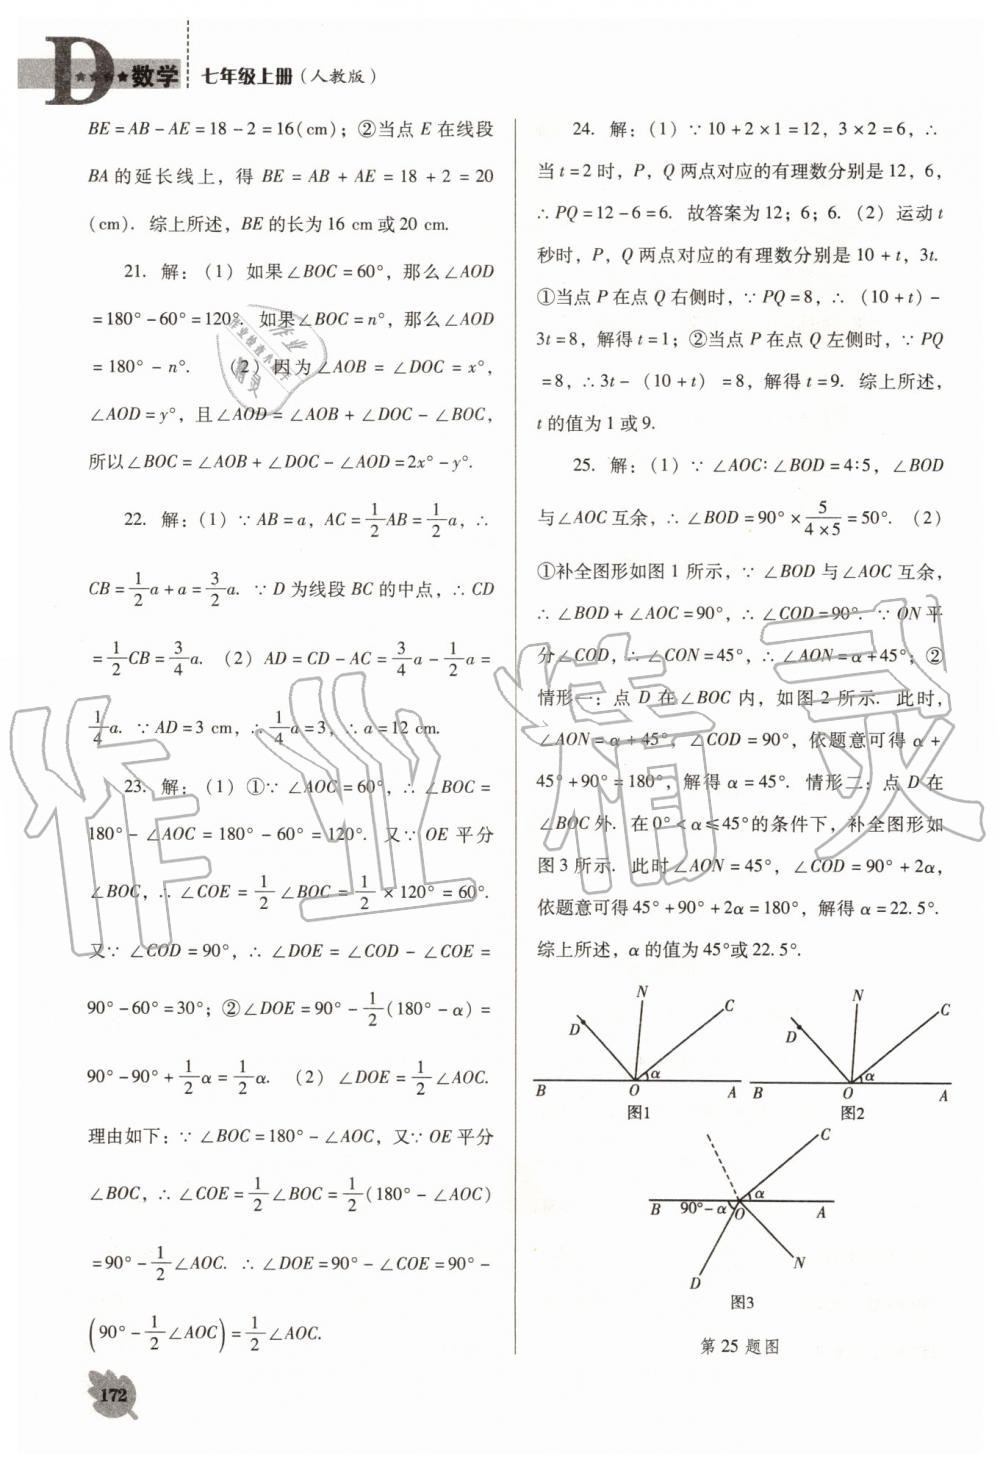 D
★★★★ 数学 七年级上册（人教版）
BE = AB - AE = 18 - 2 = 16(cm)；②当点 E 在线段
BA 的延长线上，得 BE = AB + AE = 18 + 2 = 20
(cm)．综上所述，BE 的长为 16 cm 或 20 cm.
21．解：(1) 如果∠BOC = 60°，那么∠AOD
= 180° - 60° = 120°．如果∠BOC = n°，那么∠AOD
= 180° - n°．(2) 因为∠AOB = ∠DOC = x°，
∠AOD = y°，且∠AOD = ∠AOB + ∠DOC - ∠BOC，
所以∠BOC = ∠AOB + ∠DOC - ∠AOD = 2x° - y°.
22．解：(1) ∵ AB = a，AC = 1/2 AB = 1/2 a，∴
CB = 1/2 a + a = 3/2 a. ∵ D 为线段 BC 的中点，∴ CD
= 1/2 CB = 3/4 a. (2) AD = CD - AC = 3/4 a - 1/2 a =
1/4 a. ∵ AD = 3 cm，∴ 1/4 a = 3，∴ a = 12 cm.
23．解：(1) ①∵ ∠AOC = 60°，∴ ∠BOC =
180° - ∠AOC = 180° - 60° = 120°．又∵ OE 平分
∠BOC，∴ ∠COE = 1/2 ∠BOC = 1/2 × 120° = 60°.
又∵ ∠COD = 90°，∴ ∠DOE = ∠COD - ∠COE =
90° - 60° = 30°；②∠DOE = 90° - 1/2 (180° - α) =
90° - 90° + 1/2 α = 1/2 α. (2) ∠DOE = 1/2 ∠AOC.
理由如下：∵ ∠BOC = 180° - ∠AOC，又∵ OE 平分
∠BOC，∴ ∠COE = 1/2 ∠BOC = 1/2 (180° - ∠AOC)
= 90° - 1/2 ∠AOC. ∴ ∠DOE = 90° - ∠COE = 90° -
(90° - 1/2 ∠AOC) = 1/2 ∠AOC.
172
24．解：(1) ∵ 10 + 2 × 1 = 12，3 × 2 = 6，∴
当 t = 2 时，P，Q 两点对应的有理数分别是 12，6，
∴ PQ = 12 - 6 = 6．故答案为 12；6；6. (2) 运动 t
秒时，P，Q 两点对应的有理数分别是 10 + t，3t.
①当点 P 在点 Q 右侧时，∵ PQ = 8，∴ (10 + t) -
3t = 8，解得 t = 1；②当点 P 在点 Q 左侧时，∵ PQ
= 8，∴ 3t - (10 + t) = 8，解得 t = 9．综上所述，
t 的值为 1 或 9.
25．解：(1) ∵ ∠AOC∶∠BOD = 4∶5，∠BOD
与∠AOC 互余，∴ ∠BOD = 90° × 5/(4×5) = 50°. (2)
①补全图形如图 1 所示，∵ ∠BOD 与∠AOC 互余，
∴ ∠BOD + ∠AOC = 90°，∴ ∠COD = 90°. ∵ ON 平
分∠COD，∴ ∠CON = 45°，∴ ∠AON = α + 45°；②
情形一：点 D 在∠BOC 内，如图 2 所示．此时，
∠AON = α + 45°，∠COD = 90°，依题意可得 α +
45° + 90° = 180°，解得 α = 45°．情形二：点 D 在
∠BOC 外．在 0° < α ≤ 45° 的条件下，补全图形如
图 3 所示．此时∠AON = 45°，∠COD = 90° + 2α，
依题意可得 45° + 90° + 2α = 180°，解得 α = 22.5°.
综上所述，α 的值为 45° 或 22.5°.
N C D α B O A
图1
N C D α B O A
图2
C α B 90° - α O A N D
图3
第 25 题图
作业精灵